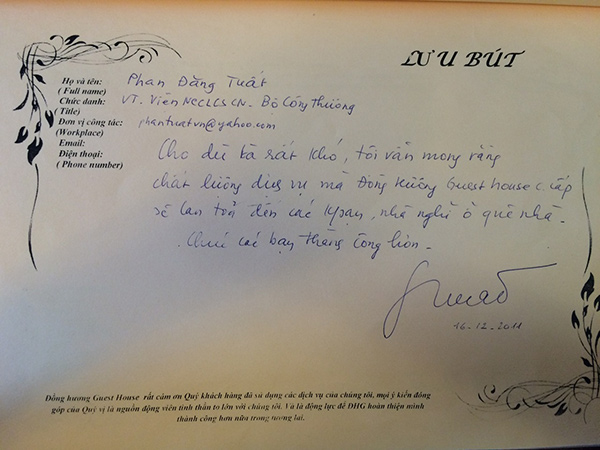 LƯU BÚT
Họ và tên: Phan Đăng Tuất
( Full name)
Chức danh: VT. Viện NCCLCSCN - Bộ Công Thương
( Title)
Đơn vị công tác: phantuatvn@yahoo.com
(Workplace)
Email:
Điện thoại:
( Phone number)
Cho dù là rất khó, tôi vẫn mong rằng
chất lượng dịch vụ mà Đồng Hương Guest house c.cấp
sẽ lan toả đến các K/sạn, nhà nghỉ ở quê nhà.
Chúc các bạn thành công hơn.
16-12-2011
Đồng hương Guest House rất cảm ơn Quý khách hàng đã sử dụng các dịch vụ của chúng tôi, mọi ý kiến đóng
góp của Quý vị là nguồn động viên tinh thần to lớn với chúng tôi. Và là động lực để DHG hoàn thiện mình
thành công hơn nữa trong tương lai.